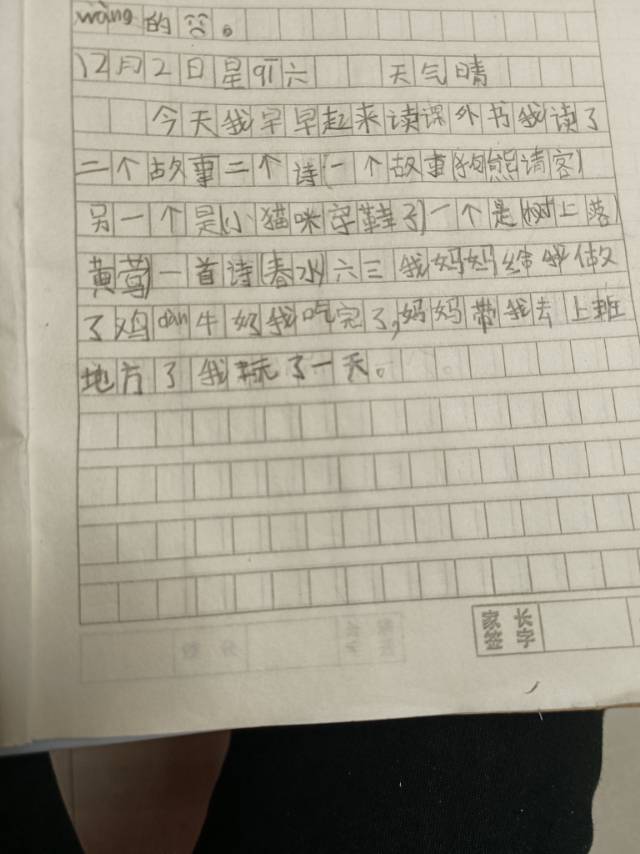 wàng的答。
12月2日星期六 天气晴
今天我早早起来读课外书我读了
二个故事二个诗(一个故事(狗熊请客)
另一个是(小猫咪穿鞋子)一个是(树上落
黄莺)一首诗(春水)六三我妈妈给我做
了鸡dàn牛奶我吃完了,妈妈带我去上班
地方了我玩了一天。
家长
签字